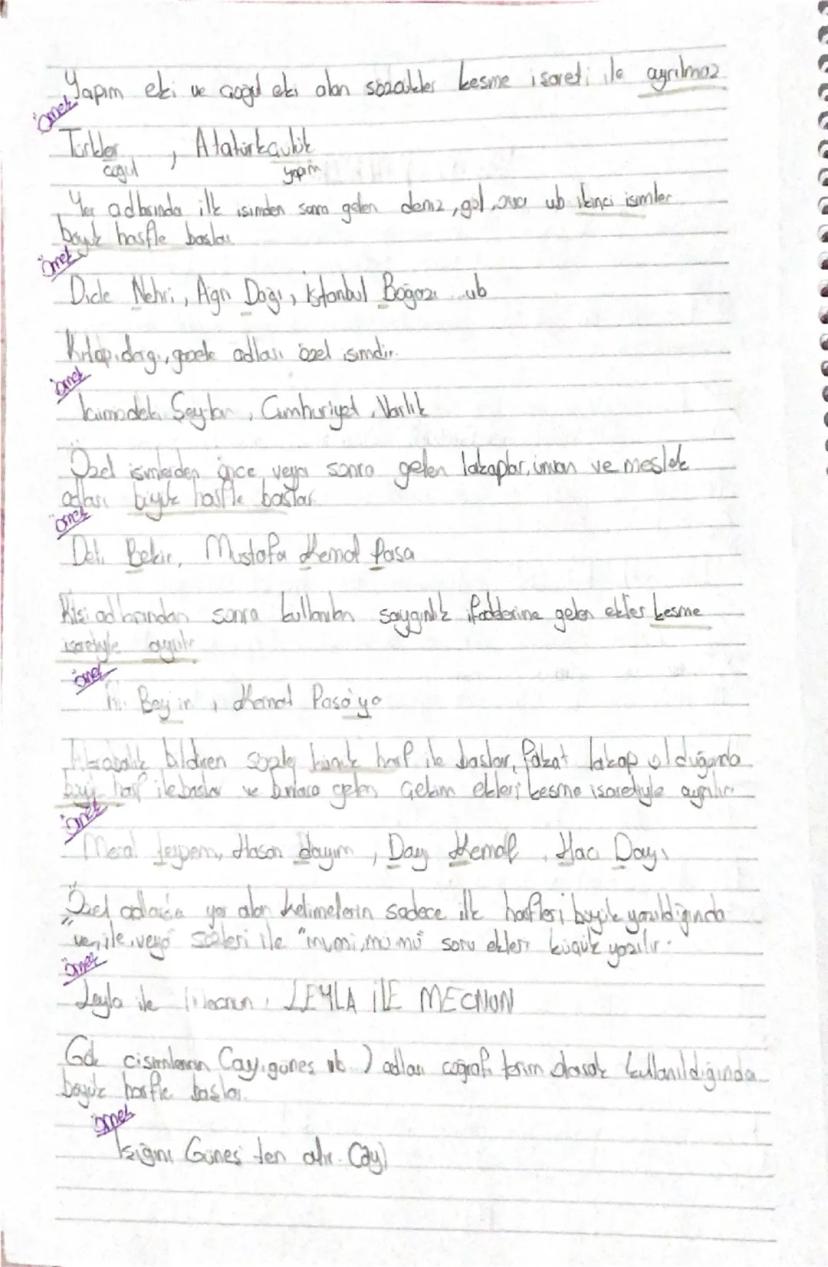 Yapım eki ve çoğul eki alan sözcükler kesme işareti ile ayrılmaz
örnek
Türkler, Atatürkçülük
çoğul yapım
Yer adlarında ilk isimden sonra gelen deniz, göl, ova vb ikinci isimler
büyük harfle başlar
örnek
Dicle Nehri, Ağrı Dağı, İstanbul Boğazı vb
Kitap, dergi, gazete adları özel isimdir.
örnek
İçimizdeki Şeytan, Cumhuriyet, Varlık
Özel isimlerden önce veya sonra gelen lakaplar, ünvan ve meslek
adları büyük harfle başlar
örnek
Deli Bekir, Mustafa Kemal Paşa
Kişi adlarından sonra kullanılan saygınlık ifadelerine gelen ekler kesme
işaretiyle ayrılır
örnek
Bey'in, Kemal Paşa'ya
Akrabalık bildiren küçük harf ile başlar, Fakat lakap olduğunda
büyük harf ile başlar ve bunlara gelen Çekim ekleri kesme işaretiyle ayrılır
örnek
Meral teyzem, Hasan dayım, Dayı Kemal, Hacı Dayı
Özel adlarda yer alan kelimelerin sadece ilk harfleri büyük yazıldığında
"ve, ile, veya" sözleri ile "mı, mi, mu mü" soru ekleri küçük yazılır.
örnek
Leyla ile Mecnun, LEYLA İLE MECNUN
Gök cisimlerinin (ay, güneş vb) adları coğrafi terim olarak kullanıldığında
büyük harfle başlar
örnek
Işığını Güneş'ten alır. (ay)